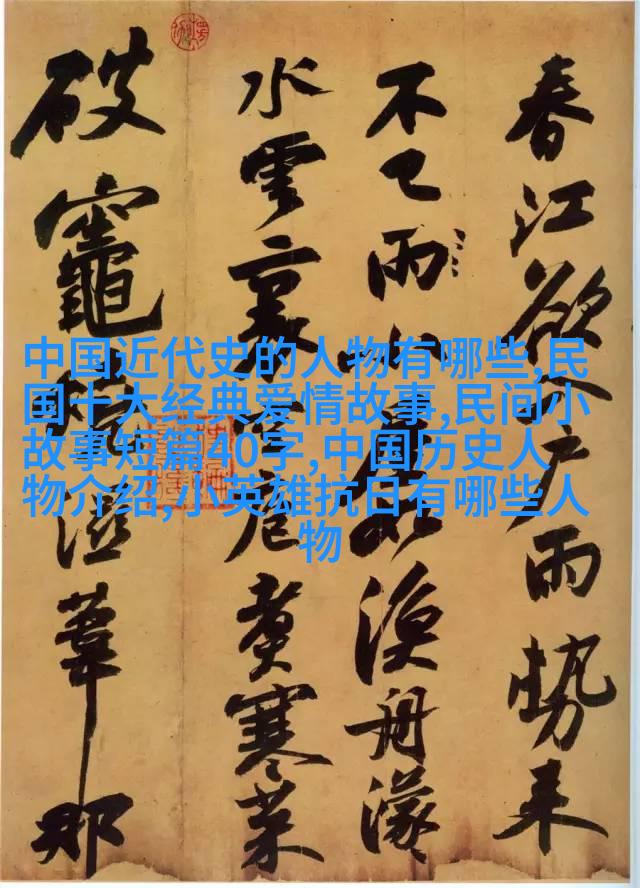 春江欲入戶雨勢來
不已雨小屋如漁舟濛
水雲裏空庖煮寒菜
破竈燒濕葦那
中国近代史的人物有哪些,民
国十大经典爱情故事,民间小
故事短篇40字,中国历史人
物介绍,小英雄抗日有哪些人
物